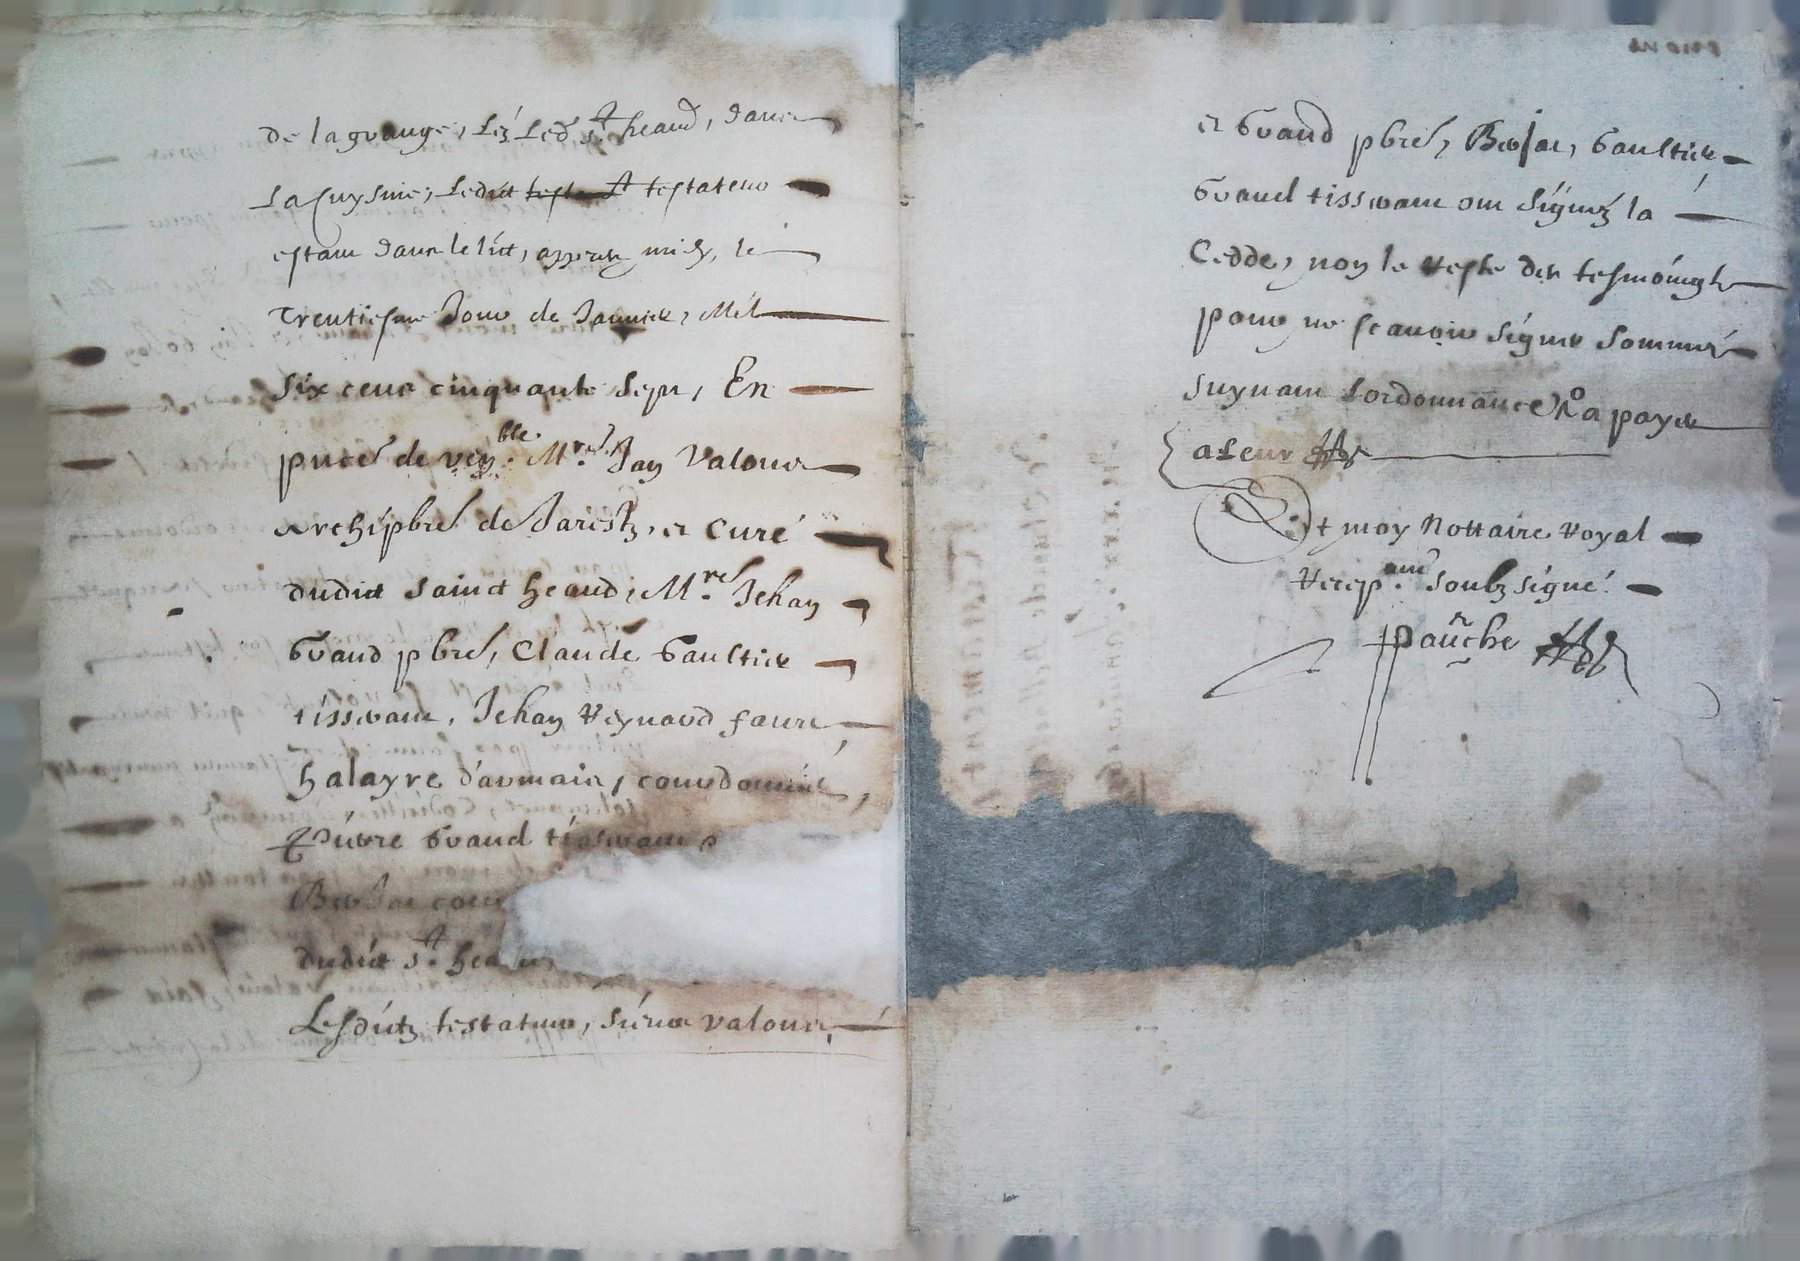 de la grange, Lez Led St heand, dans
La Cuysine, Ledict testateur
estant dans le lict, appres midy, le
trentiesme Jour de Janvier, Mil
six cens cinquante sept, En
pnce de venble Mre Jan Valous
archipbre de Jarestz, et curé
dudict sainct heand, Mre Jehan
Grand pbre, Claude Gaultier
tisserant, Jehan Reynaud faure
halayre d'armais, courdonnier,
Pierre Grand tisserant
dudict St hea
Lesdictz testateur, sieurs Valous,
et Grand pbre, Gaultier
Grand tisserant ont signez la
Cedde, non le reste des tesmoingtz
pour ne scavoir signer sommés
suyvant Lordonnance Ro a payer
aLeur
Et moy Nottaire Royal
recepant soubzsigné.
Panche